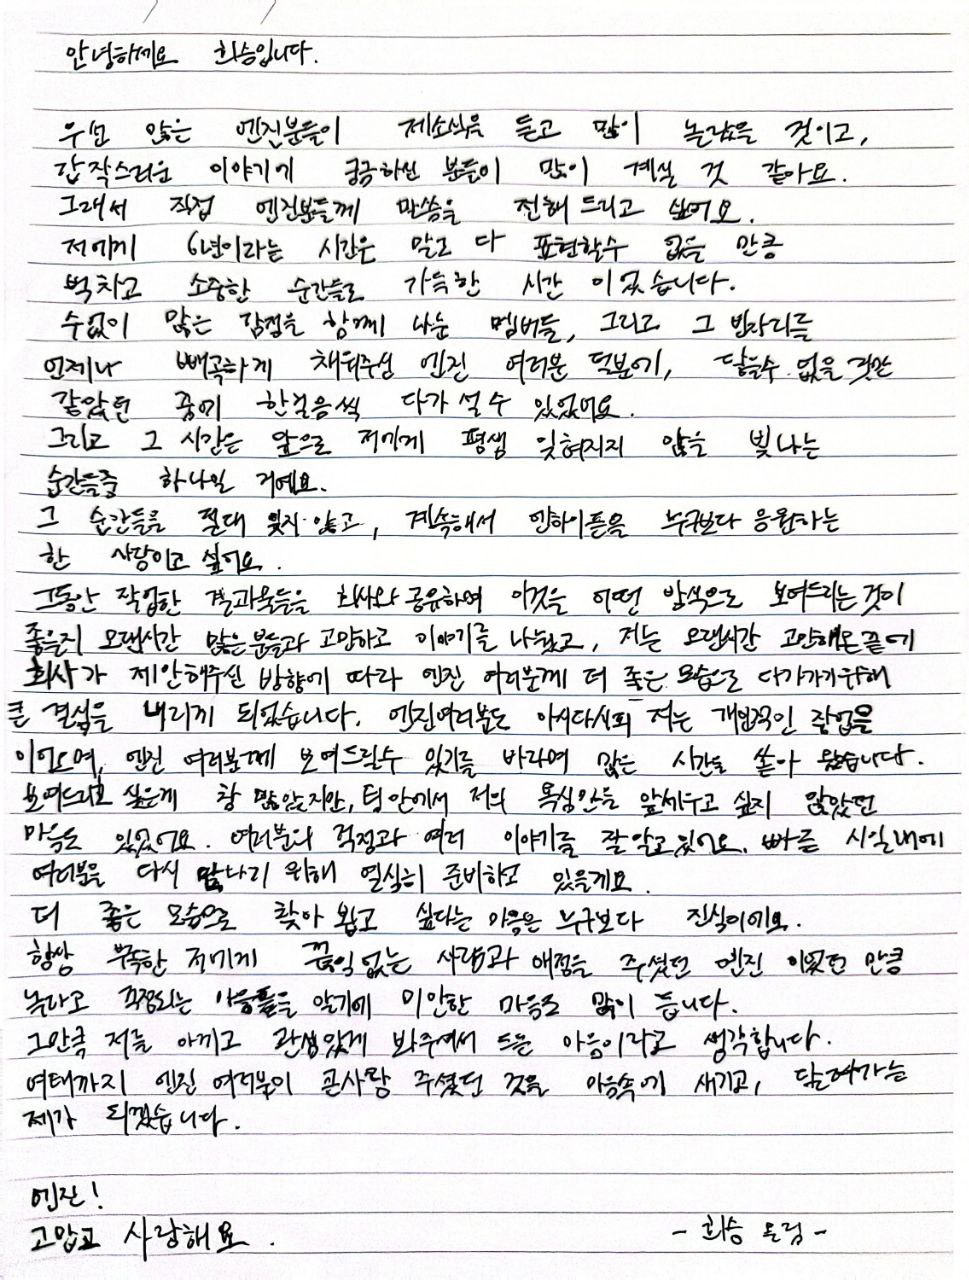 안녕하세요 희승입니다.
우선 많은 엔진분들이 제소식을 듣고 많이 놀랐을 것이고,
갑작스러운 이야기에 궁금하신 분들이 많이 계실 것 같아요.
그래서 직접 엔진분들께 말씀을 전해 드리고 싶어요.
저에게 6년이라는 시간은 말로 다 표현할수 없을 만큼
벅차고 소중한 순간들로 가득한 시간 이었습니다.
수없이 많은 감정을 함께 나눈 멤버들, 그리고 그 빈자리를
언제나 빼곡하게 채워주셨 엔진 여러분 덕분에, 닿을수 없을 것만
같았던 꿈에 한걸음씩 다가 설 수 있었어요.
그리고 그 시간은 앞으로 저에게 평생 잊혀지지 않을 빛나는
순간들중 하나일 거예요.
그 순간들을 절대 잊지 않고, 계속해서 엔하이픈을 누구보다 응원하는
한 사람이고 싶어요.
그동안 작업한 결과물들을 회사와 공유하며 이것을 어떤 방식으로 보여드리는것이
좋을지 오랜시간 많은분들과 고민하고 이야기를 나눴고, 저는 오랜시간 고민해온끝에
회사가 제안해주신 방향에 따라 엔진 여러분께 더 좋은 모습으로 다가가기위해
큰 결심을 내리게 되었습니다. 엔진여러분도 아시다시피 저는 개인적인 작업을
이어오며, 엔진 여러분께 보여드릴수 있기를 바라며 많은 시간을 쏟아 왔습니다.
보여드리고 싶은게 참 많았지만, 팀 안에서 저의 욕심만을 앞세우고 싶지 않았던
마음도 있었어요. 여러분의 걱정과 여러 이야기를 잘 알고있어요. 빠른 시일내에
여러분을 다시 만나기 위해 열심히 준비하고 있을게요.
더 좋은 모습으로 찾아 뵙고 싶다는 마음은 누구보다 진심이에요.
항상 부족한 저에게 끊임없는 사랑과 애정을 주셨던 엔진 이었던 만큼
놀라고 걱정되는 마음들을 알기에 미안한 마음도 많이 듭니다.
그만큼 저를 아끼고 관심있게 봐주셔서 드는 마음이라고 생각합니다.
여태까지 엔진 여러분이 큰사랑 주셨던 것을 마음속에 새기고, 달려가는
제가 되겠습니다.
엔진!
고맙고 사랑해요.
- 희승 드림 -